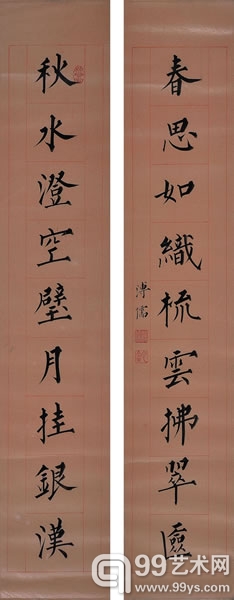 春思如織梳雲拂翠匳
溥儒
秋水澄空璧月挂銀漢
99艺术网
www.99ys.com